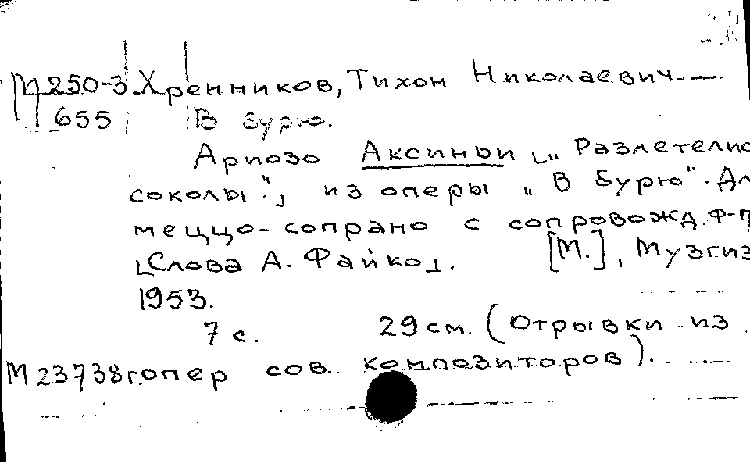 М250-3 Хренников, Тихон Николаевич.—
655 В бурю.
Ариозо Аксиньи [„Разлетелис
соколы“], из оперы „В бурю“. Дл
меццо-сопрано с сопровожд. ф-п
[Слова А. Файко]. [М.], Музгиз
1953.
7 с. 29 см. (Отрывки из
М23738г. опер сов. композиторов).